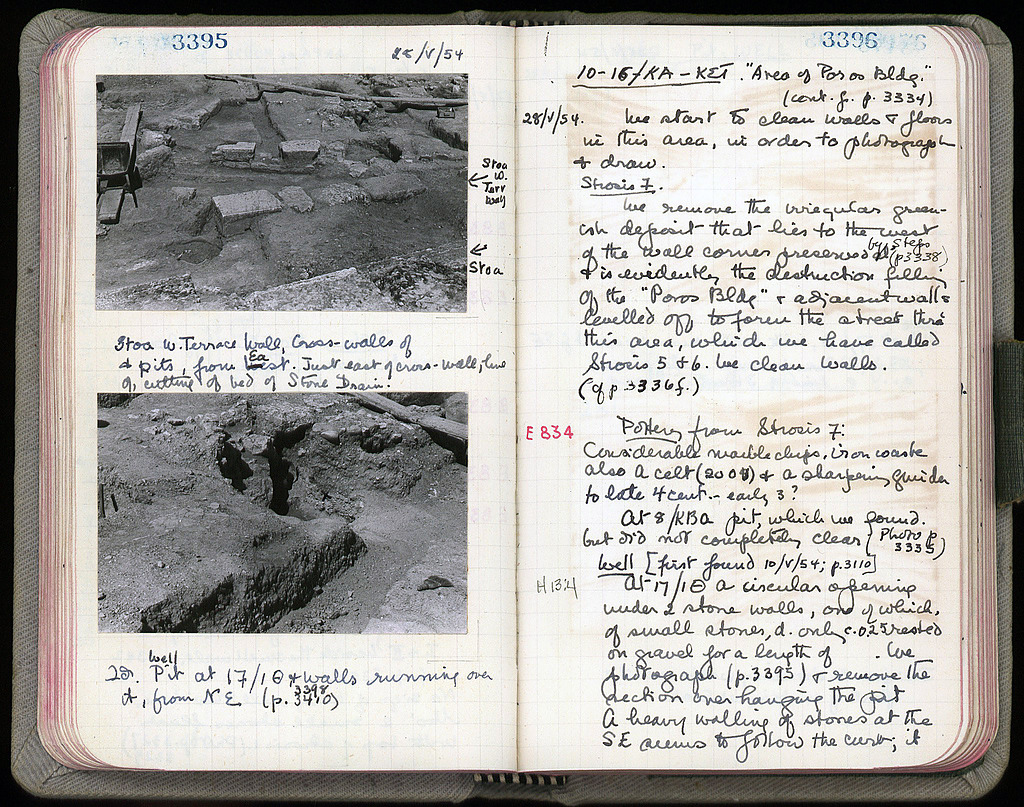 3395
28/V/54
Stoa
W.
Terr
Wall
Stoa
Stoa W. Terrace Wall, Cross-walls of
& pits, from East. Just east of cross-wall, line
of cutting of bed of Stone Drain.
well
2D. Pit at 17/ΙΘ & walls running over
it, from NE (p. 3398
3410)
3396
10-16/ΚΑ-ΚΣΤ. "Area of Poros Bldg."
(cont. f. p. 3334)
28/V/54. We start to clean walls & floors
in this area, in order to photograph
& draw.
Strosis 7.
We remove the irregular green-
ish deposit that lies to the west
of the wall corner preserved by steps (p3338)
& is evidently the destruction filling
of the "Poros Bldg" & adjacent walls
levelled off to form the street thro
this area, which we have called
Strosis 5 & 6. We clean walls.
(cf p. 3336f.)
E 834 Pottery from Strosis 7:
Considerable marble chips, iron waste
also a celt (2008) & a sharpening
to late 4 cent. - early 3?
At 8/ΚΒα pit, which we found
but did not completely clear (Photo p
3335)
Well [first found 10/V/54; p.3110]
H 13:4 At 17/ΙΘ a circular opening
under 2 stone walls, one of which,
of small stones, d. only c.025 rested
on gravel for a length of . We
photograph (p.3395) & remove the
section overhanging the pit
A heavy walling of stones at the
SE seems to follow the curb; it